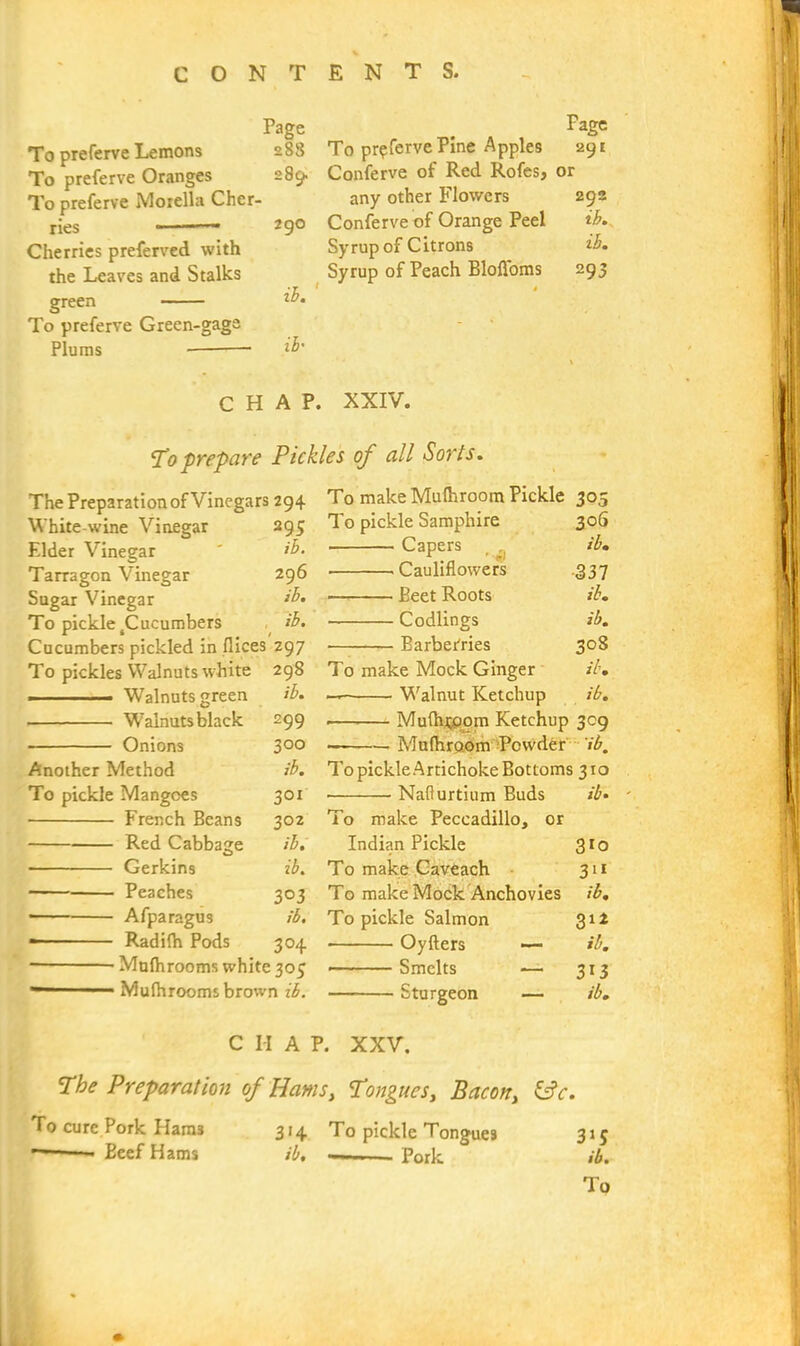 CONTENTS.
Page
To preſerve Lemons 288
To preſerve Oranges 289.
To preſerve Morella Cher-
ries —— 290
Cherries preſerved with
the Leaves and Stalks
green —— ib.
To preſerve Green-gage
Plums —— ib.
Page
To preſerve Pine Apples 291
Conſerve of Red Roſes, or
any other Flowers 292
Conſerve of Orange Peel ib.
Syrup of Citrons ib.
Syrup of Peach Bloſſoms 293
CHAP. XXIV.
To prepare Pickles of all Sorts.
The Preparation of Vinegars 294
White-wine Vinegar 295
Elder Vinegar ib.
Tarragon Vinegar 296
Sugar Vinegar ib.
To pickle Cucumbers ib.
Cucumbers pickled in ſlices 297
To pickles Walnuts white 298
—— Walnuts green ib.
—— Walnuts black 299
—— Onions 300
Another Method ib.
To pickle Mangoes 301
—— French Beans 302
—— Red Cabbage ib.
—— Gerkins ib.
—— Peaches 303
—— Aſparagus ib.
—— Radiſh Pods 304
—— Muſhrooms white 305
—— Muſhrooms brown ib.
To make Muſhroom Pickle 305
To pickle Samphire 306
—— Capers ib.
—— Cauliflowers 337
—— Beet Roots ib.
—— Codlings ib.
—— Barberries 308
To make Mock Ginger ib.
—— Walnut Ketchup ib.
—— Muſhroom Ketchup 309
—— Muſhroom Powder ib.
To pickle Artichoke Bottoms 310
—— Naſturtium Buds ib.
To make Peccadillo, or
Indian Pickle 310
To make Caveach 311
To make Mock Anchovies ib.
To pickle Salmon 312
—— Oyſters — ib.
—— Smelts — 313
—— Sturgeon — ib.
CHAP. XXV.
The Preparation of Hams, Tongues, Bacon, &c.
To cure Pork Hams 314
—— Beef Hams ib.
To pickle Tongues 315
—— Pork ib.
To